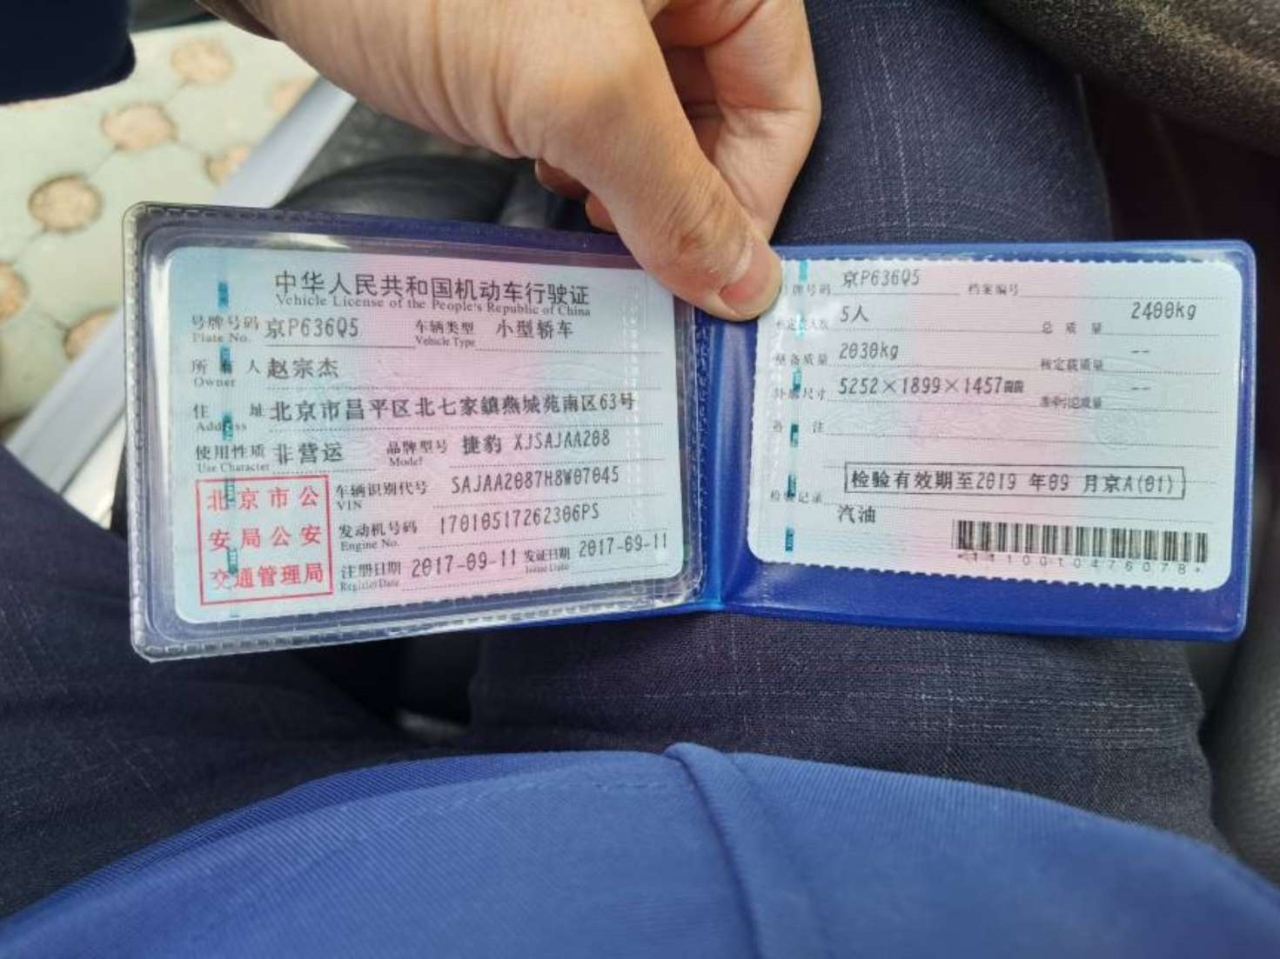 中华人民共和国机动车行驶证
Vehicle License of the People's Republic of China
号牌号码 京P636Q5 车辆类型 小型轿车
Plate No. Vehicle Type
所 人 赵宗杰
Owner
住 址 北京市昌平区北七家镇燕城苑南区63号
Address
使用性质 非营运 品牌型号 捷豹 XJSAJAA208
Use Character Model
北京市公
安局公安
交通管理局
车辆识别代号 SAJAA2087H8W07045
VIN
发动机号码 17010517262306PS
Engine No.
注册日期 2017-09-11 发证日期 2017-09-11
Register Date Issue Date
牌号码 京P636Q5 档案编号
人数 5人 总质量 2400kg
整备质量 2030kg 核定载质量 --
外廓尺寸 5252×1899×1457mm 质量 --
备 注
检验有效期至2019 年09 月京A(01)
检验记录
汽油